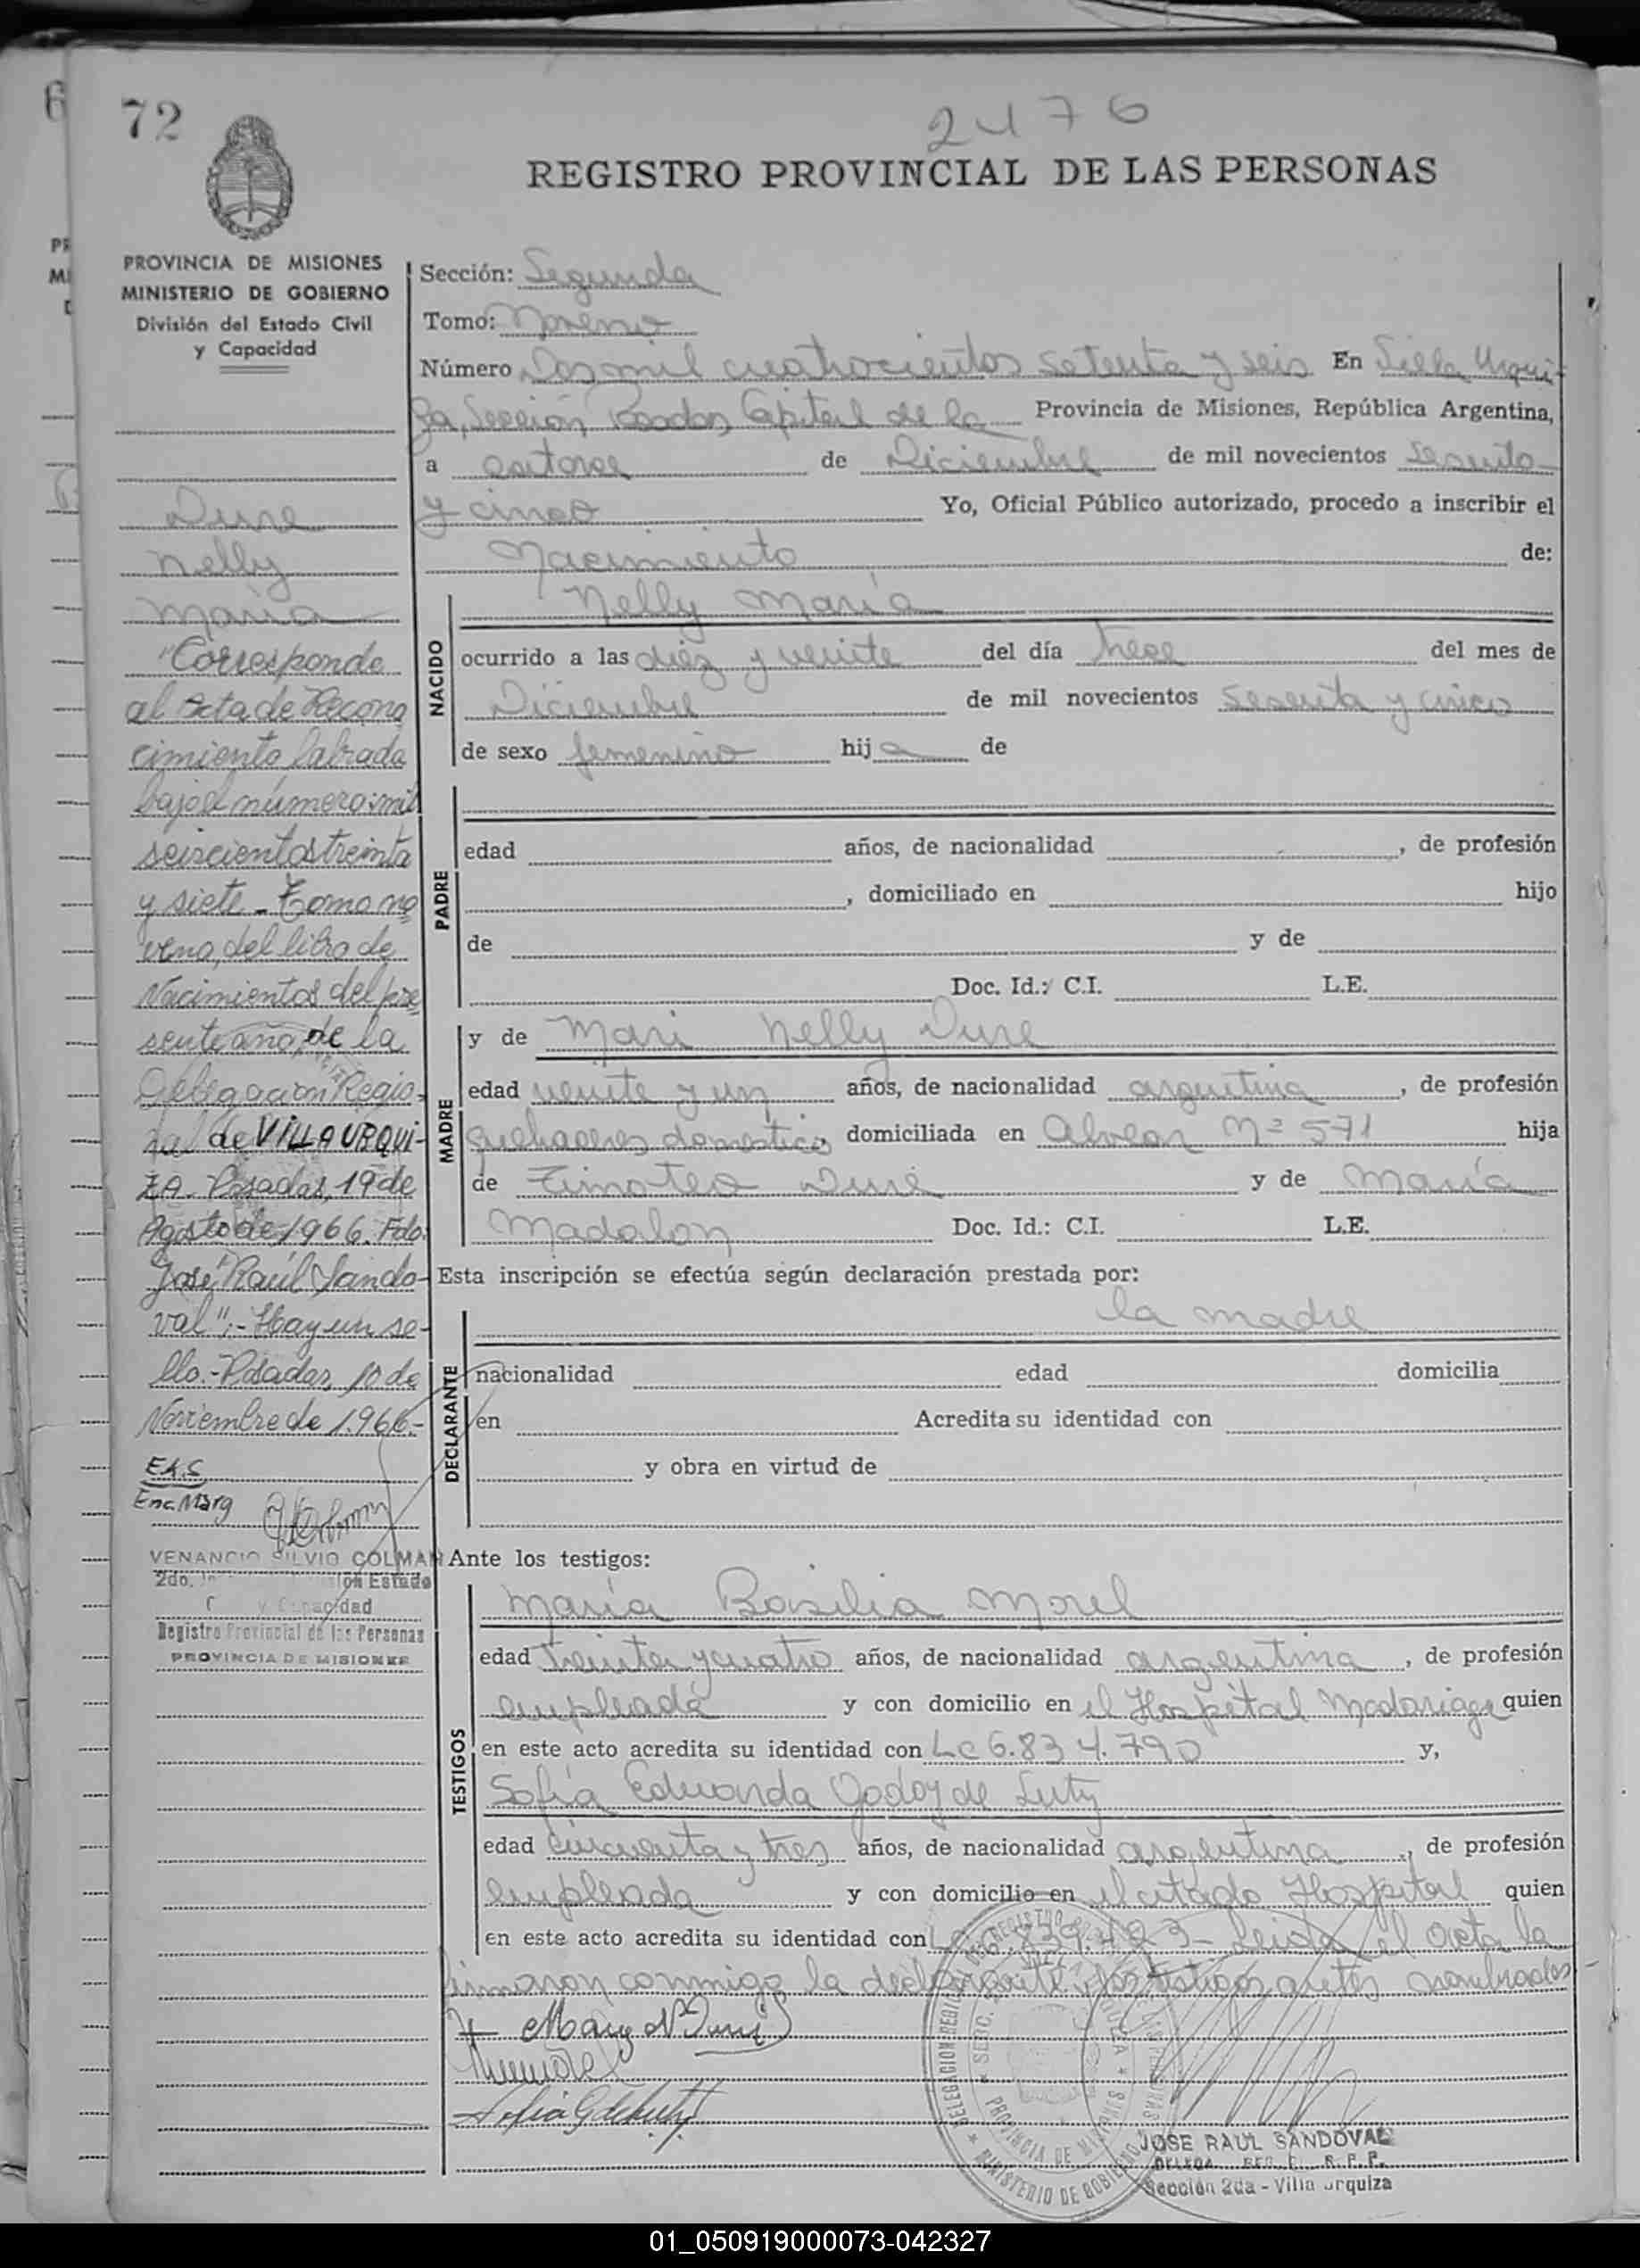 72
2476
REGISTRO PROVINCIAL DE LAS PERSONAS
PROVINCIA DE MISIONES
MINISTERIO DE GOBIERNO
División del Estado Civil
y Capacidad
Dure
Nelly
María
"Corresponde
al Acta de Recono
cimiento labrada
bajo el número: mil
seiscientos treinta
y siete - Tomo no
veno, del libro de
Nacimientos del pre
sente año, de la
Delegación Regio-
nal de VILLA URQUI-
ZA. Posadas, 19 de
Agosto de 1966. Fdo:
José Raúl Sando-
val".- Hay un se-
llo.- Posadas, 10 de
Noviembre de 1.966.-
E.K.S
Enc. Marg
VENANCIO SILVIO COLMAN
2do. Estado
y Capacidad
Registro Provincial de las Personas
PROVINCIA DE MISIONES
Sección: Segunda
Tomo: Noveno
Número Dos mil cuatrocientos setenta y seis En Villa Urqui-
za, Sección Posadas, Capital de la Provincia de Misiones, República Argentina,
a catorce de Diciembre de mil novecientos sesenta
y cinco Yo, Oficial Público autorizado, procedo a inscribir el
Nacimiento de:
NACIDO
Nelly María
ocurrido a las diez y veinte del día trece del mes de
Diciembre de mil novecientos sesenta y cinco
de sexo femenino hija de
PADRE
edad años, de nacionalidad , de profesión
, domiciliado en hijo
de y de
Doc. Id.: C.I. L.E.
MADRE
y de Mari Nelly Dure
edad veinte y un años, de nacionalidad argentina , de profesión
quehaceres domestico, domiciliada en Alvear Nº 571 hija
de Timoteo Duré y de María
Madalon Doc. Id.: C.I. L.E.
Esta inscripción se efectúa según declaración prestada por:
DECLARANTE
la madre
nacionalidad edad domicilia
en Acredita su identidad con
y obra en virtud de
Ante los testigos:
TESTIGOS
María Basilia Morel
edad treinta y cuatro años, de nacionalidad argentina , de profesión
empleada y con domicilio en el Hospital Madariaga quien
en este acto acredita su identidad con LC 6.834.790 y,
Sofía Eduarda Godoy de Luty
edad cincuenta y tres años, de nacionalidad argentina , de profesión
empleada y con domicilio en el citado Hospital quien
en este acto acredita su identidad con Leida el acta la
firmaron conmigo la declarante y los testigos antes nombrados-
JOSE RAUL SANDOVAL
R. P. P.
Sección 2da - Villa Urquiza
01_050919000073-042327